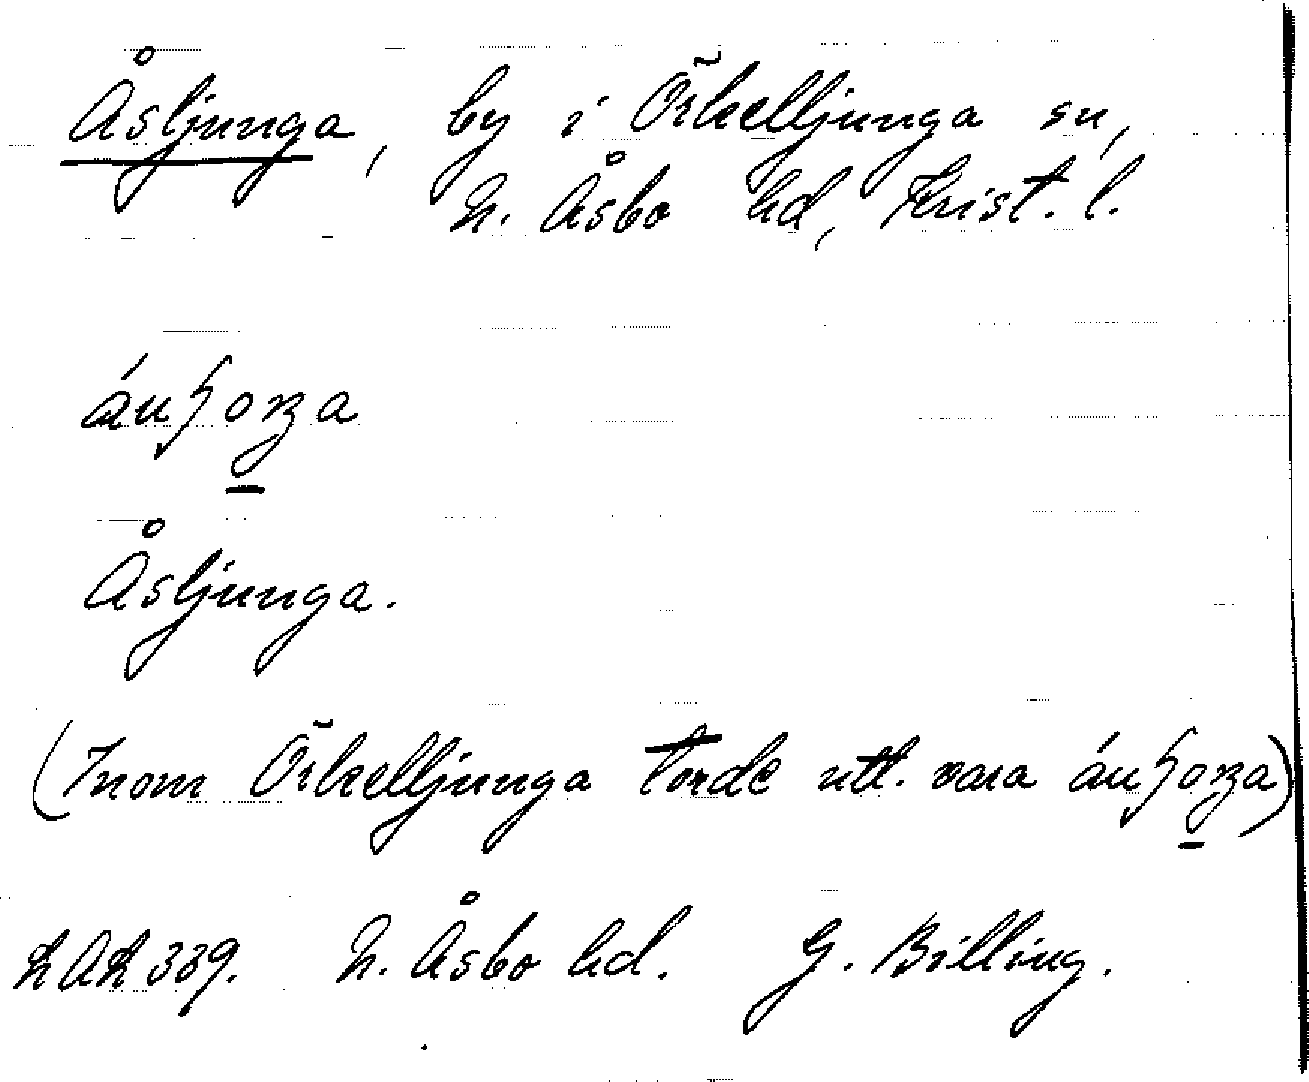 Åsljunga, by i Örkelljunga sn,
N. Åsbo hd, Krist. l.
Åsljunga.
(Inom Örkelljunga torde utt. vara
LAL 339. N. Åsbo hd. G. Billing.